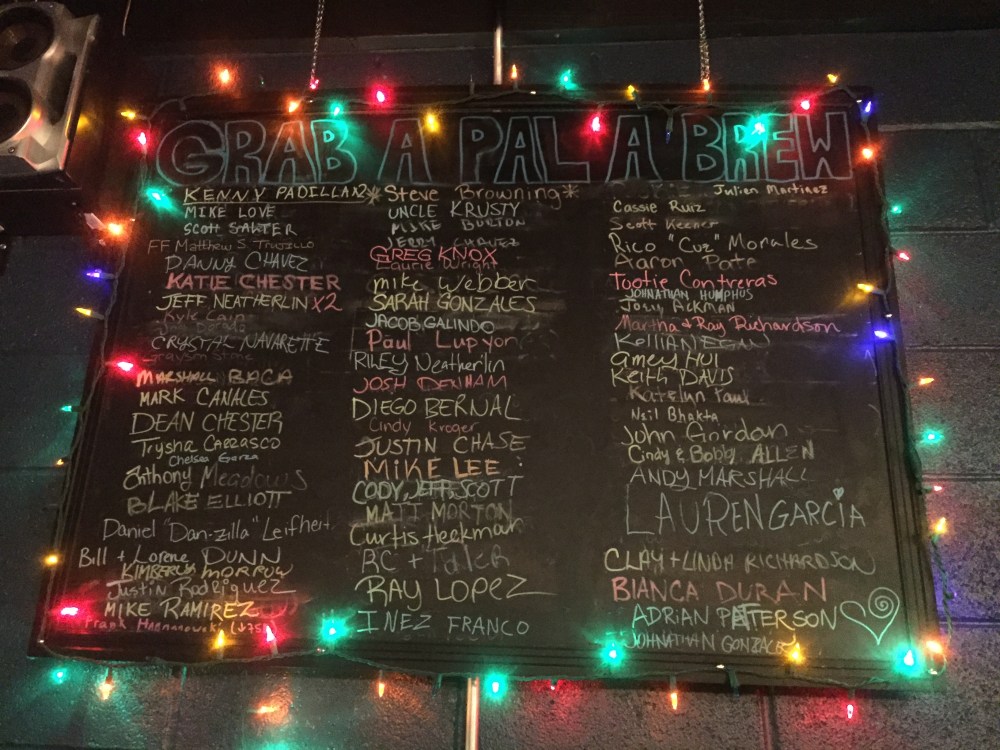 GRAB A PAL A BREW
KENNY PADILLA X2*
MIKE LOVE
SCOTT SAWTER
FF Matthew S. Trujillo
DANNY CHAVEZ
KATIE CHESTER
JEFF NEATHERLIN X2
Kyle Cain
CRYSTAL NAVARETTE
Grayson Stone
MARSHALL BACA
MARK CANALES
DEAN CHESTER
Trysha CARRASCO
Chelsea Garza
Anthony Meadows
BLAKE ELLIOTT
Daniel "Dan-zilla" Leifheit
Bill + Lorene DUNN
KIMBERLY MORROW
Justin Rodriguez
MIKE RAMIREZ
Frank
Steve Browning*
UNCLE KRUSTY
MIKE BURTON
JERRY CHAVEZ
GREG KNOX
Laurie Wright
mike Webber
SARAH GONZALES
JACOB GALINDO
Paul Lupyor
RILEY Neatherlin
JOSH DENHAM
DIEGO BERNAL
Cindy Kroger
JUSTIN CHASE
MIKE LEE
CODY, JEFF, SCOTT
MATT MORTON
Curtis Heckman
RC + Taler
RAY LOPEZ
INEZ FRANCO
Julien Martinez
Cassie Ruiz
Scott Keener
Rico "Cuz" Morales
Aaron Pate
Tootie Contreras
JOHNATHAN HUMPHUS
Joey ACKMAN
Martha & Ray Richardson
KELLIAN EGAN
Amey HUI
Keith DAVIS
Katelyn Paul
Neil Bhakta
John Gordon
Cindy & Bobby ALLEN
ANDY MARSHALL
LAUREN GARCIA
CLAY + LINDA RICHARDSON
BIANCA DURAN
ADRIAN PATTERSON
JOHNATHAN GONZALEZ